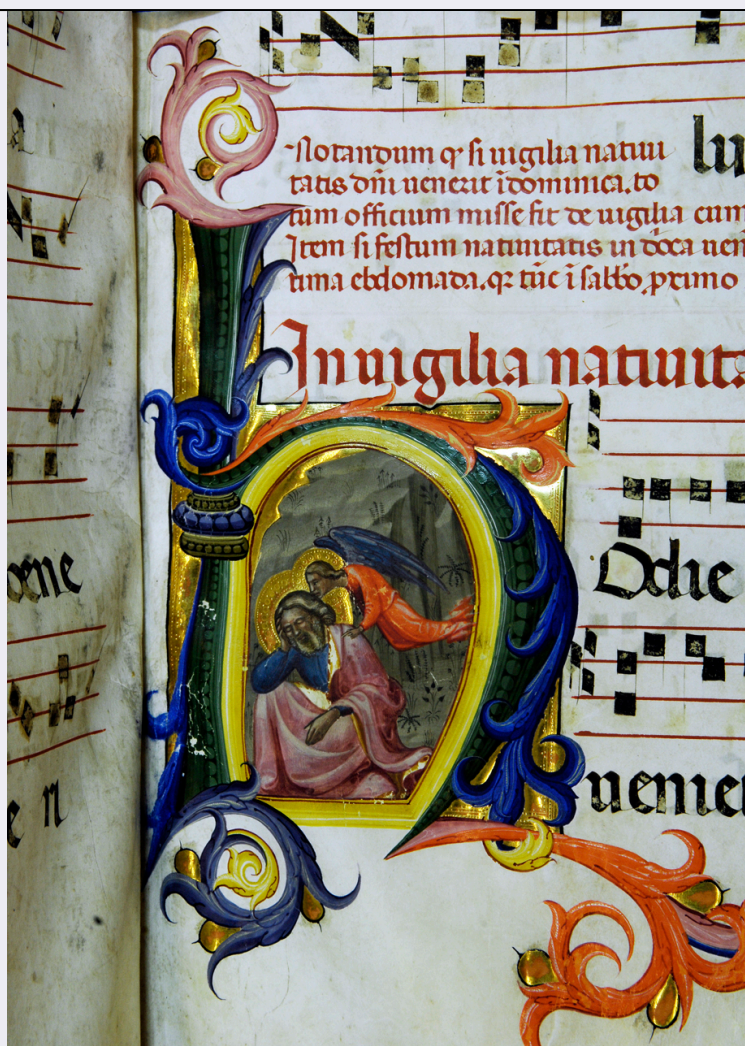 lu
Notandum qꝫ si uigilia natiui
tatis dñi uenerit ĩ dominica. to
tum officium misse fit de uigilia cum
Item si festum natiuitatis in doca uen
tima ebdomada. qꝛ tũc ĩ sabbo. primo
In uigilia natiuita
Hodie
uenie